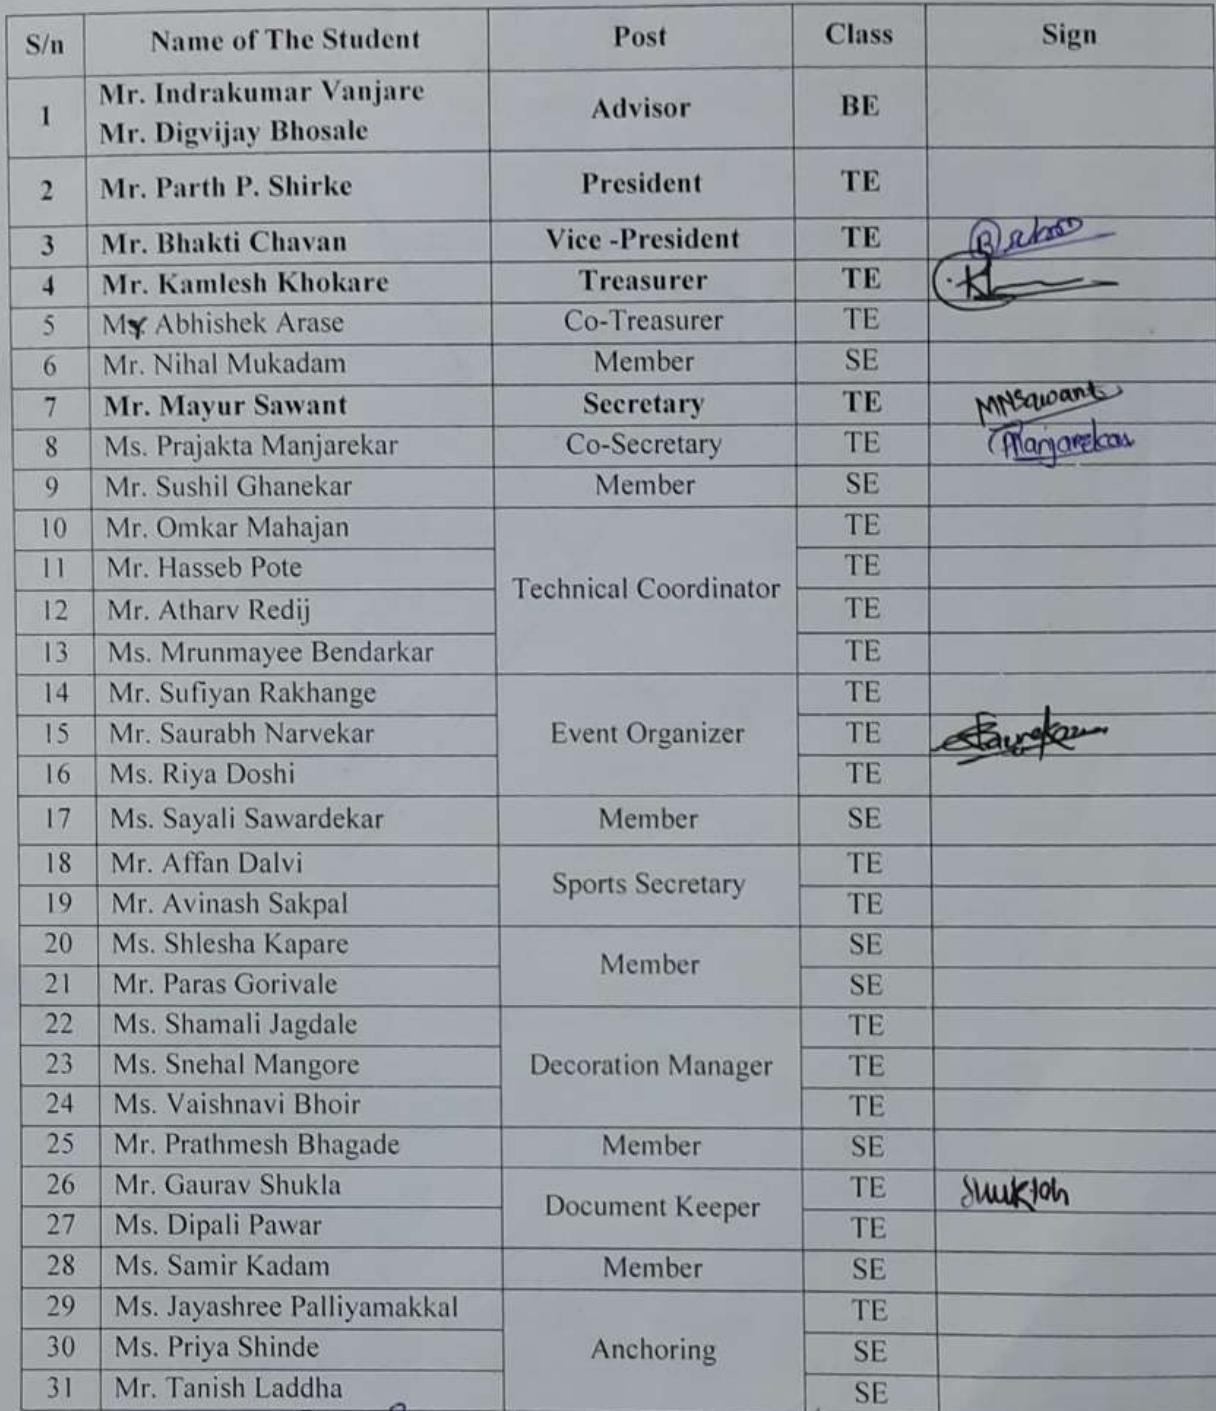 S/n Name of The Student Post Class Sign
1 Mr. Indrakumar Vanjare
Mr. Digvijay Bhosale Advisor BE
2 Mr. Parth P. Shirke President TE
3 Mr. Bhakti Chavan Vice -President TE
4 Mr. Kamlesh Khokare Treasurer TE
5 Mr Abhishek Arase Co-Treasurer TE
6 Mr. Nihal Mukadam Member SE
7 Mr. Mayur Sawant Secretary TE MNSawant
8 Ms. Prajakta Manjarekar Co-Secretary TE Manjarekar
9 Mr. Sushil Ghanekar Member SE
10 Mr. Omkar Mahajan TE
11 Mr. Hasseb Pote TE
Technical Coordinator
12 Mr. Atharv Redij TE
13 Ms. Mrunmayee Bendarkar TE
14 Mr. Sufiyan Rakhange TE
15 Mr. Saurabh Narvekar Event Organizer TE
16 Ms. Riya Doshi TE
17 Ms. Sayali Sawardekar Member SE
18 Mr. Affan Dalvi TE
Sports Secretary
19 Mr. Avinash Sakpal TE
20 Ms. Shlesha Kapare SE
Member
21 Mr. Paras Gorivale SE
22 Ms. Shamali Jagdale TE
23 Ms. Snehal Mangore Decoration Manager TE
24 Ms. Vaishnavi Bhoir TE
25 Mr. Prathmesh Bhagade Member SE
26 Mr. Gaurav Shukla TE
Document Keeper
27 Ms. Dipali Pawar TE
28 Ms. Samir Kadam Member SE
29 Ms. Jayashree Palliyamakkal TE
30 Ms. Priya Shinde Anchoring SE
31 Mr. Tanish Laddha SE